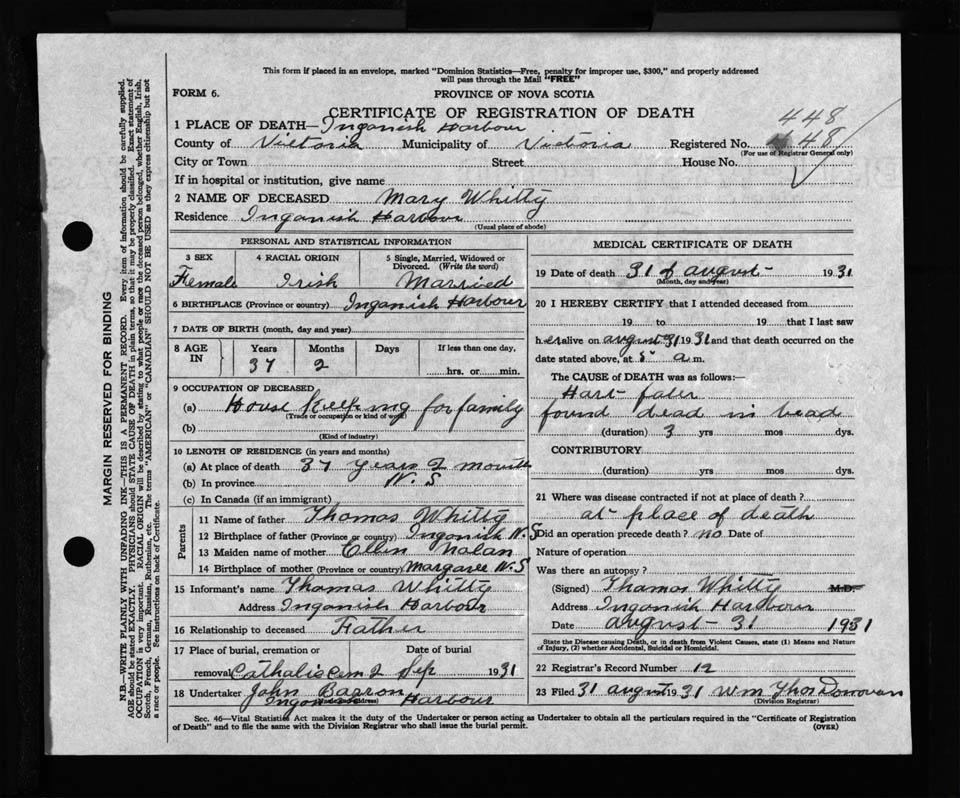 This form if placed in an envelope, marked "Dominion Statistics—Free, penalty for improper use, $300," and properly addressed
will pass through the Mail "FREE"
FORM 6.
PROVINCE OF NOVA SCOTIA
CERTIFICATE OF REGISTRATION OF DEATH
448
1 PLACE OF DEATH—Inganish Harbour
County of Victoria Municipality of Victoria Registered No. 448
(For use of Registrar General only)
City or Town Street House No.
If in hospital or institution, give name
2 NAME OF DECEASED Mary Whitty
Residence Inganish Harbour
(Usual place of abode)
PERSONAL AND STATISTICAL INFORMATION
3 SEX 4 RACIAL ORIGIN 5 Single, Married, Widowed or
Divorced. (Write the word)
Female Irish Married
6 BIRTHPLACE (Province or country) Inganish Harbour
7 DATE OF BIRTH (month, day and year)
8 AGE IN Years Months Days If less than one day,
37 2 hrs. or min.
9 OCCUPATION OF DECEASED
(a) House Keeping for family
(Trade or occupation or kind of work)
(b)
(Kind of industry)
10 LENGTH OF RESIDENCE (in years and months)
(a) At place of death 37 years 2 month
(b) In province N. S
(c) In Canada (if an immigrant)
Parents
11 Name of father Thomas Whitty
12 Birthplace of father (Province or country) Inganish N. S
13 Maiden name of mother Ellen Nalan
14 Birthplace of mother (Province or country) Margaree N. S
15 Informant's name Thomas Whitty
Address Inganish Harbour
16 Relationship to deceased Father
17 Place of burial, cremation or Date of burial
removal Catholic cem 2 Sep 1931
18 Undertaker John Barron
(Name and address)
Inganish Harbour
MEDICAL CERTIFICATE OF DEATH
19 Date of death 31 of august- 1931
(Month, day and year)
20 I HEREBY CERTIFY that I attended deceased from
19 to 19 that I last saw
her alive on august 31 1931 and that death occurred on the
date stated above, at 5 a m.
The CAUSE of DEATH was as follows:
Hart faler
found dead in bead
(duration) 3 yrs mos dys.
CONTRIBUTORY
(duration) yrs mos dys.
21 Where was disease contracted if not at place of death?
at place of death
Did an operation precede death? no Date of
Nature of operation
Was there an autopsy?
(Signed) Thomas Whitty M.D.
Address Inganish Harbour
Date august- 31 1931
State the Disease causing Death, or in death from Violent Causes, state (1) Means and Nature
of Injury, (2) whether Accidental, Suicidal or Homicidal.
22 Registrar's Record Number 12
23 Filed 31 august 1931 Wm Thos Donovan
(Division Registrar)
Sec. 46—Vital Statistics Act makes it the duty of the Undertaker or person acting as Undertaker to obtain all the particulars required in the "Certificate of Registration
of Death" and to file the same with the Division Registrar who shall issue the burial permit. (OVER)
MARGIN RESERVED FOR BINDING
N.B.—WRITE PLAINLY WITH UNFADING INK—THIS IS A PERMANENT RECORD. Every item of information should be carefully supplied.
AGE should be stated EXACTLY. PHYSICIANS should STATE CAUSE OF DEATH in plain terms, so that it may be properly classified. Exact statement of
OCCUPATION is very important. RACIAL ORIGIN will be described by stating to what people or race the deceased person belonged, whether English, Irish,
Scotch, French, German, Russian, Ruthenian, etc. The terms "AMERICAN" or "CANADIAN" SHOULD NOT BE USED as they express citizenship but not
a race or people. See instructions on back of Certificate.